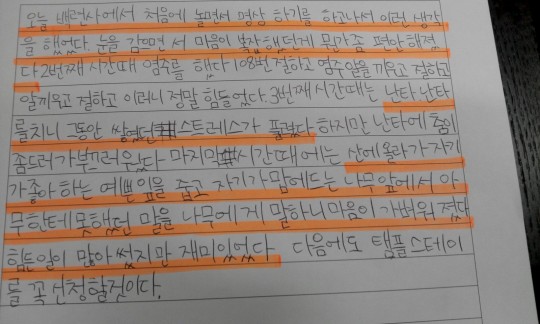 오늘 백련사에서 처음에 누면서 명상 하기를 하고나서 이런 생각
을 했었다. 눈을 감으면 서 마음이 복잡했던게 뭔가좀 편안 해졌
다 2번째 시간때 염주를 했다 108번절하고 염주알을 끼우고 절하고
알끼우고 절하고 이러니 정말 힘들었다. 3번째 시간때는 난타 난타
를치니 그동안 쌓였던 스트레스가 풀렸다 하지만 난타에 춤이
좀드러가 부끄러웠다 마지막 시간때에는 산에올라가 자기
가좋아하는 예쁜잎을 줍고 자기가 맘에드는 나무앞에서 아
무한테 못했던 말을 나무에게 말하니 마음이 가벼워 졌다
힘든일이 많아 썼지만 재미있었다. 다음에도 탬플스테이
를 꼭 신청할것이다.